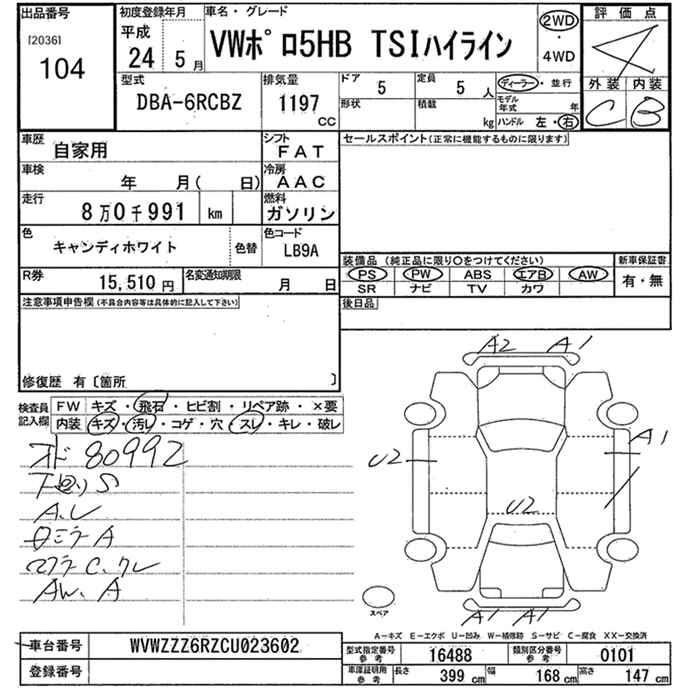 出品番号
[2036]
104
初度登録年月
平成
24 5 月
車名・グレード
VWポロ5HB TSIハイライン
2WD
・
4WD
評価点
4
外装 内装
C B
型式
DBA-6RCBZ
排気量
1197 CC
ドア 5
定員 5 人
形状
積載 kg
ディーラー・並行
モデル年式 年
ハンドル 左・右
車歴 自家用
シフト FAT
車検 年 月( 日)
冷房 AAC
走行 8万0千991 km
燃料 ガソリン
色 キャンディホワイト 色替
色コード LB9A
R券 15,510円
名変通知期限 月 日
セールスポイント(正常に機能するものに限ります)
装備品 (純正品に限り○をつけてください)
新車保証書
PS PW ABS エアB AW
SR ナビ TV カワ
有・無
後日品
注意事項申告欄 (不具合内容等は具体的に記入して下さい)
修復歴 有〔箇所 〕
検査員記入欄
FW キズ・飛石・ヒビ割・リペア跡・×要
内装 キズ・汚レ・コゲ・穴・スレ・キレ・破レ
オド 80992
下廻りS
A.U
ロミラーA
マフラーC.クレ
AW.A
A2 A1
A1
U2
U2
A1 A1
スペア
A-キズ E-エクボ U-凹み W-補修跡 S-サビ C-腐食 XX-交換済
車台番号 WVWZZZ6RZCU023602
登録番号
型式指定番号参考 16488
類別区分番号参考 0101
車庫証明用参考 長さ 399 cm 幅 168 cm 高さ 147 cm